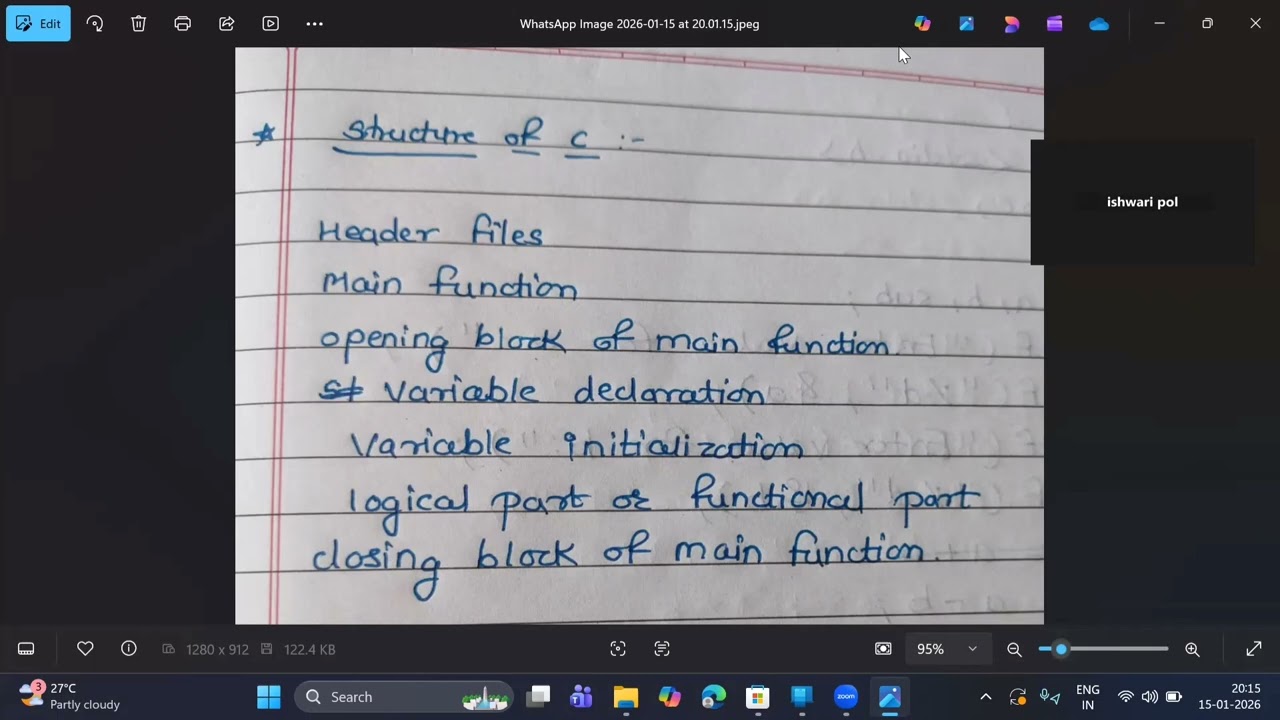 Edit
WhatsApp Image 2026-01-15 at 20.01.15.jpeg
structure of c :-
ishwari pol
Header files
Main function
opening block of main function.
Variable declaration
Variable initialization
logical part or functional part
closing block of main function.
1280 x 912
122.4 KB
95%
3
27°C
Partly cloudy
Search
zoom
ENG
IN
20:15
15-01-2026